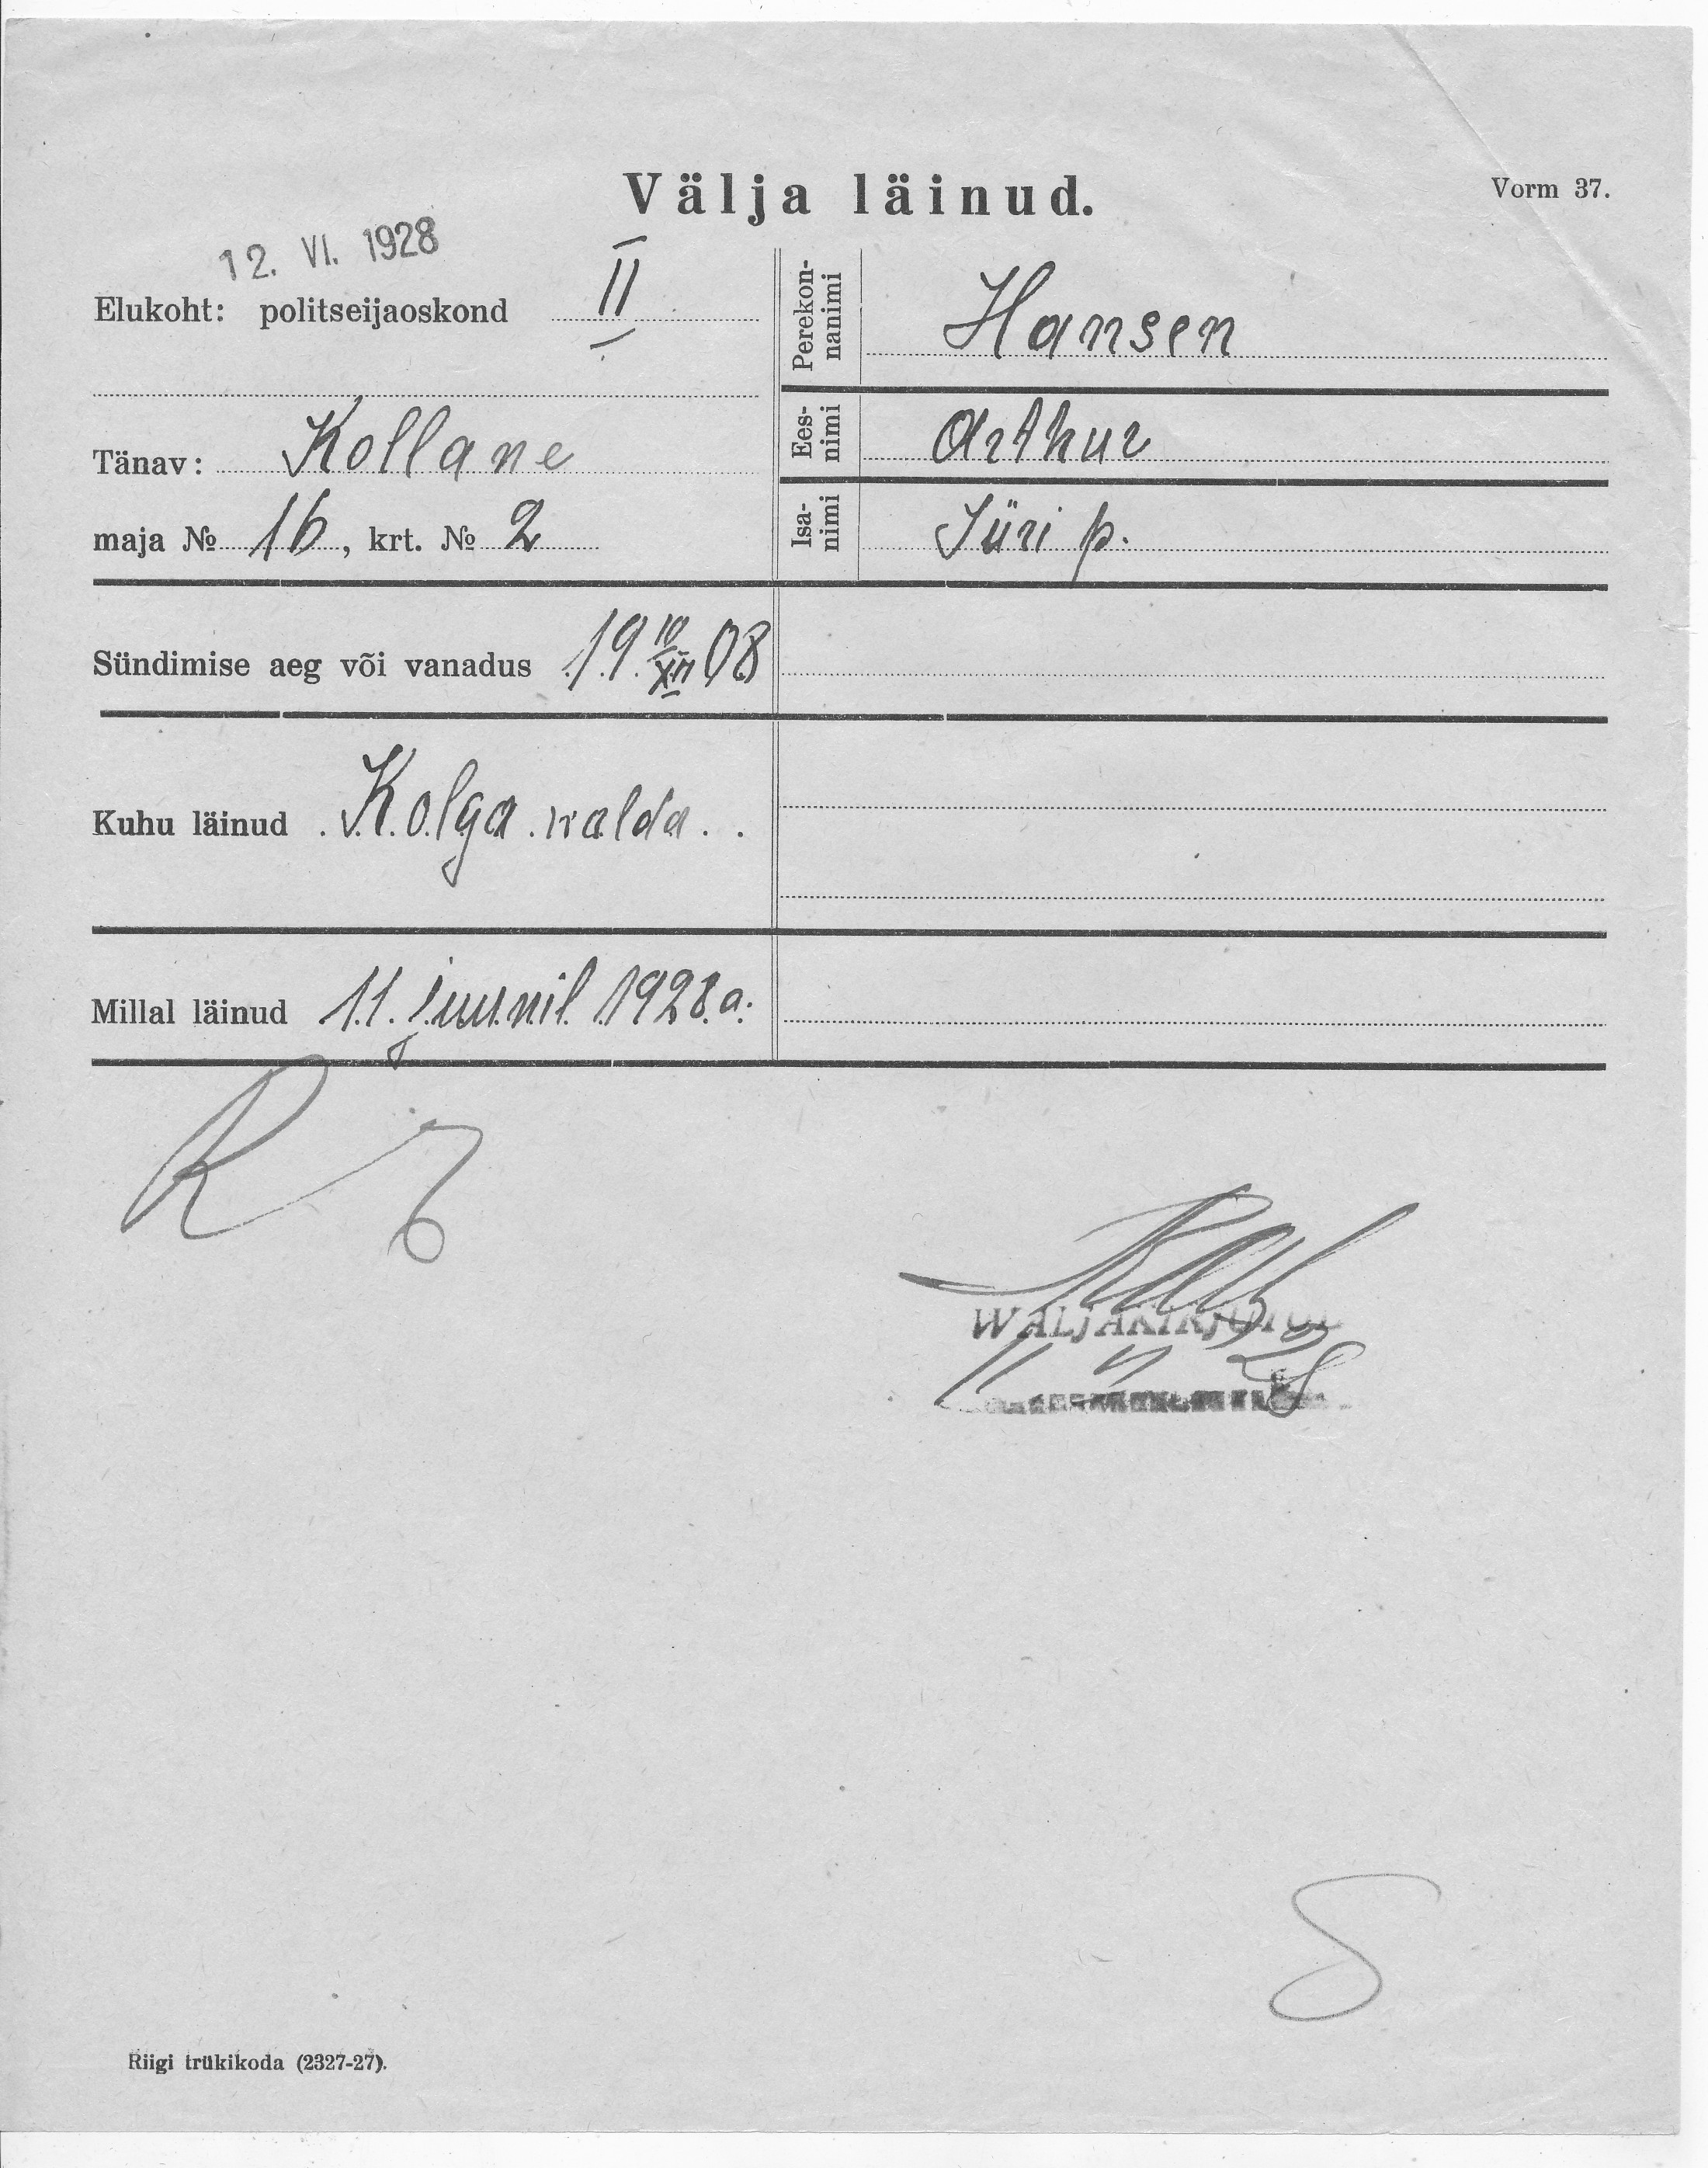 Välja läinud.
Vorm 37.
12. VI. 1928
Elukoht: politseijaoskond II
Perekon-
nanimi
Hansen
Tänav: Kollane
Ees-
nimi
Arthur
maja № 16, krt. № 2
Isa-
nimi
Jüri p.
Sündimise aeg või vanadus 19 10/XII 08
Kuhu läinud Kolga walda
Millal läinud 11. juunil 1928.a.
R
WALJAKIRJUTUD
S
Riigi trükikoda (2327-27).